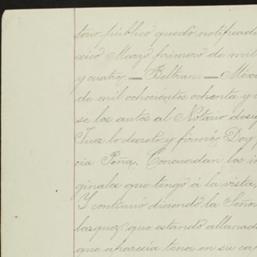 torio público quedó notificada
xico Marzo primero de mil
y cuatro — Beltran — Méxi
de mil ochocientos ochenta y
se los autos al Notario desig
Juez lo decretó y firmó. Doy
cia Peña. Concuerdan los
ginales que tengo á la vista,
Y continuó diciendo la Señor
lasquez: que estando allanada
que aparecia tener en su ca